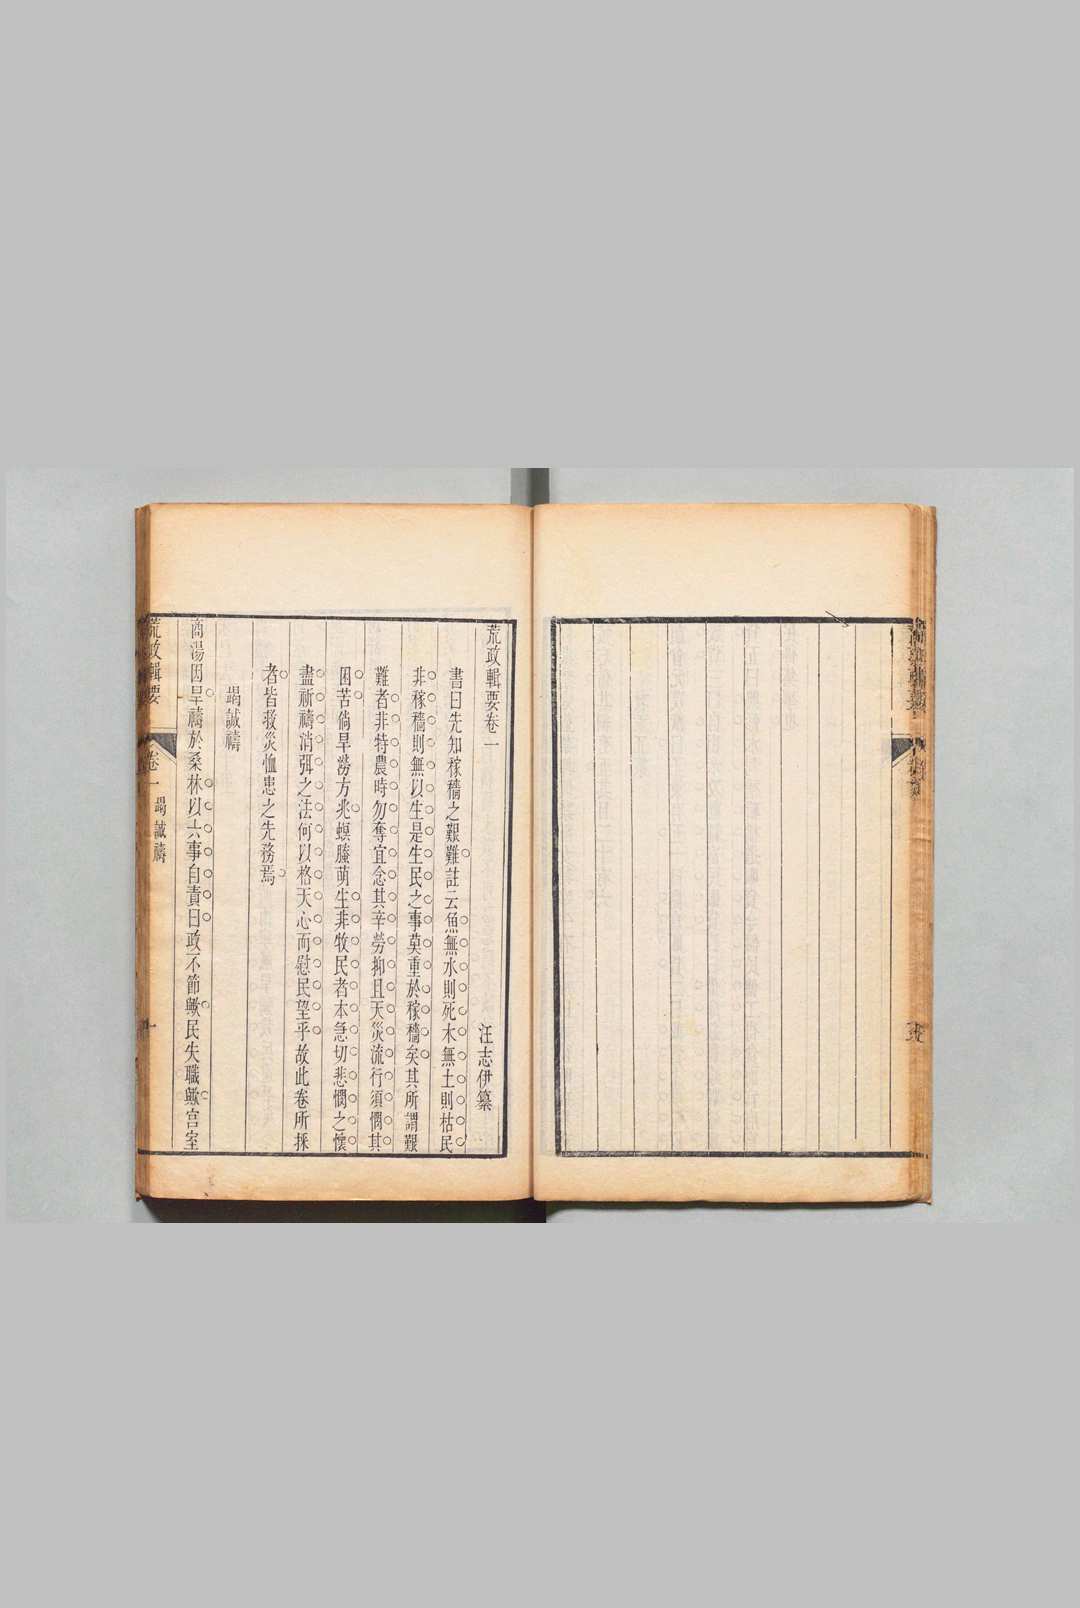 荒政輯要卷一
汪志伊纂
書曰先知稼穡之艱難註云魚無水則死木無土則枯民
非稼穡則無以生是生民之事莫重於稼穡矣其所謂艱
難者非特農時勿奪宜念其辛勞抑且天災流行須憫其
困苦倘旱澇方兆螟螣萌生非牧民者本急切悲憫之懷
盡祈禱消弭之法何以格天心而慰民望乎故此卷所採
者皆救災恤患之先務焉
竭誠禱
商湯因旱禱於桑林以六事自責曰政不節歟民失職歟宫室
荒政輯要
卷一
竭誠禱
一